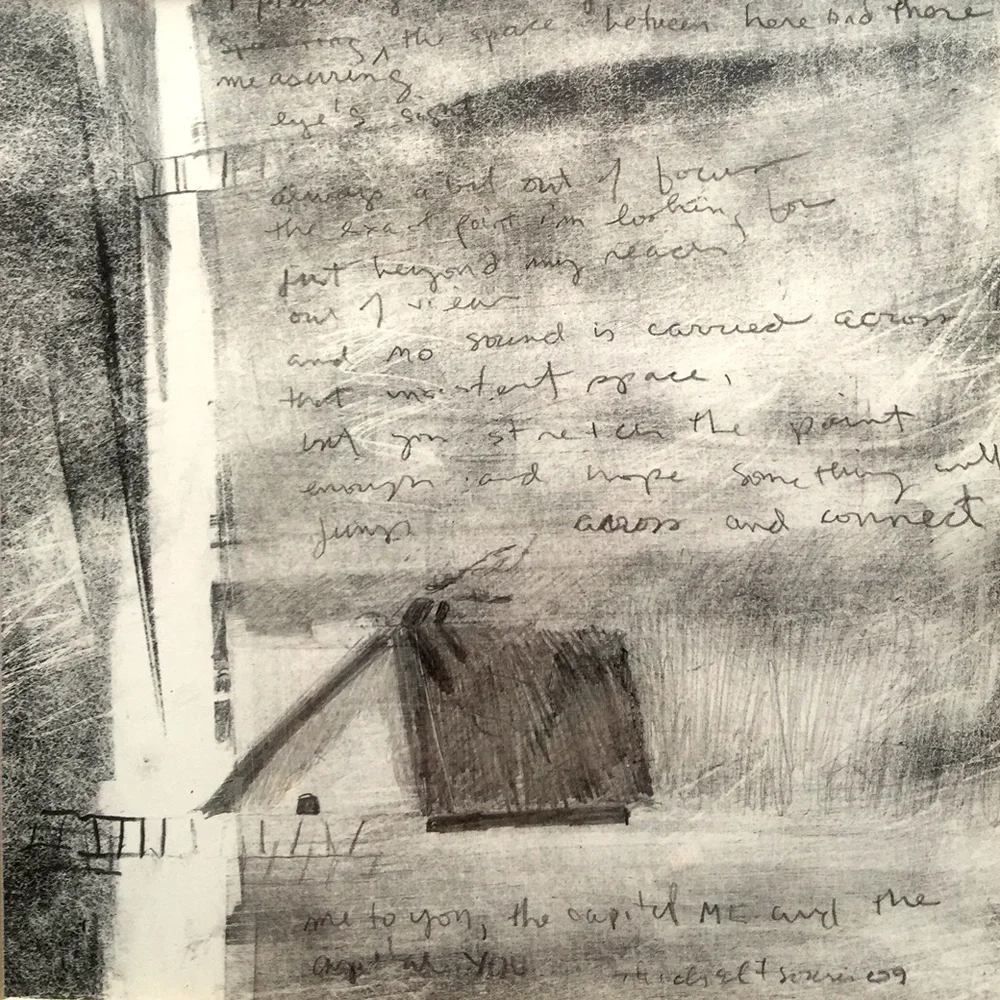 the space between here and there
measuring
eye's sight
always a bit out of focus
the exact point i'm looking for
just beyond my reach
out of view
and no sound is carried across
that insistent space,
but you stretch the point
enough and hope something will
jump across and connect
me to you, the capital ME and the
capital YOU